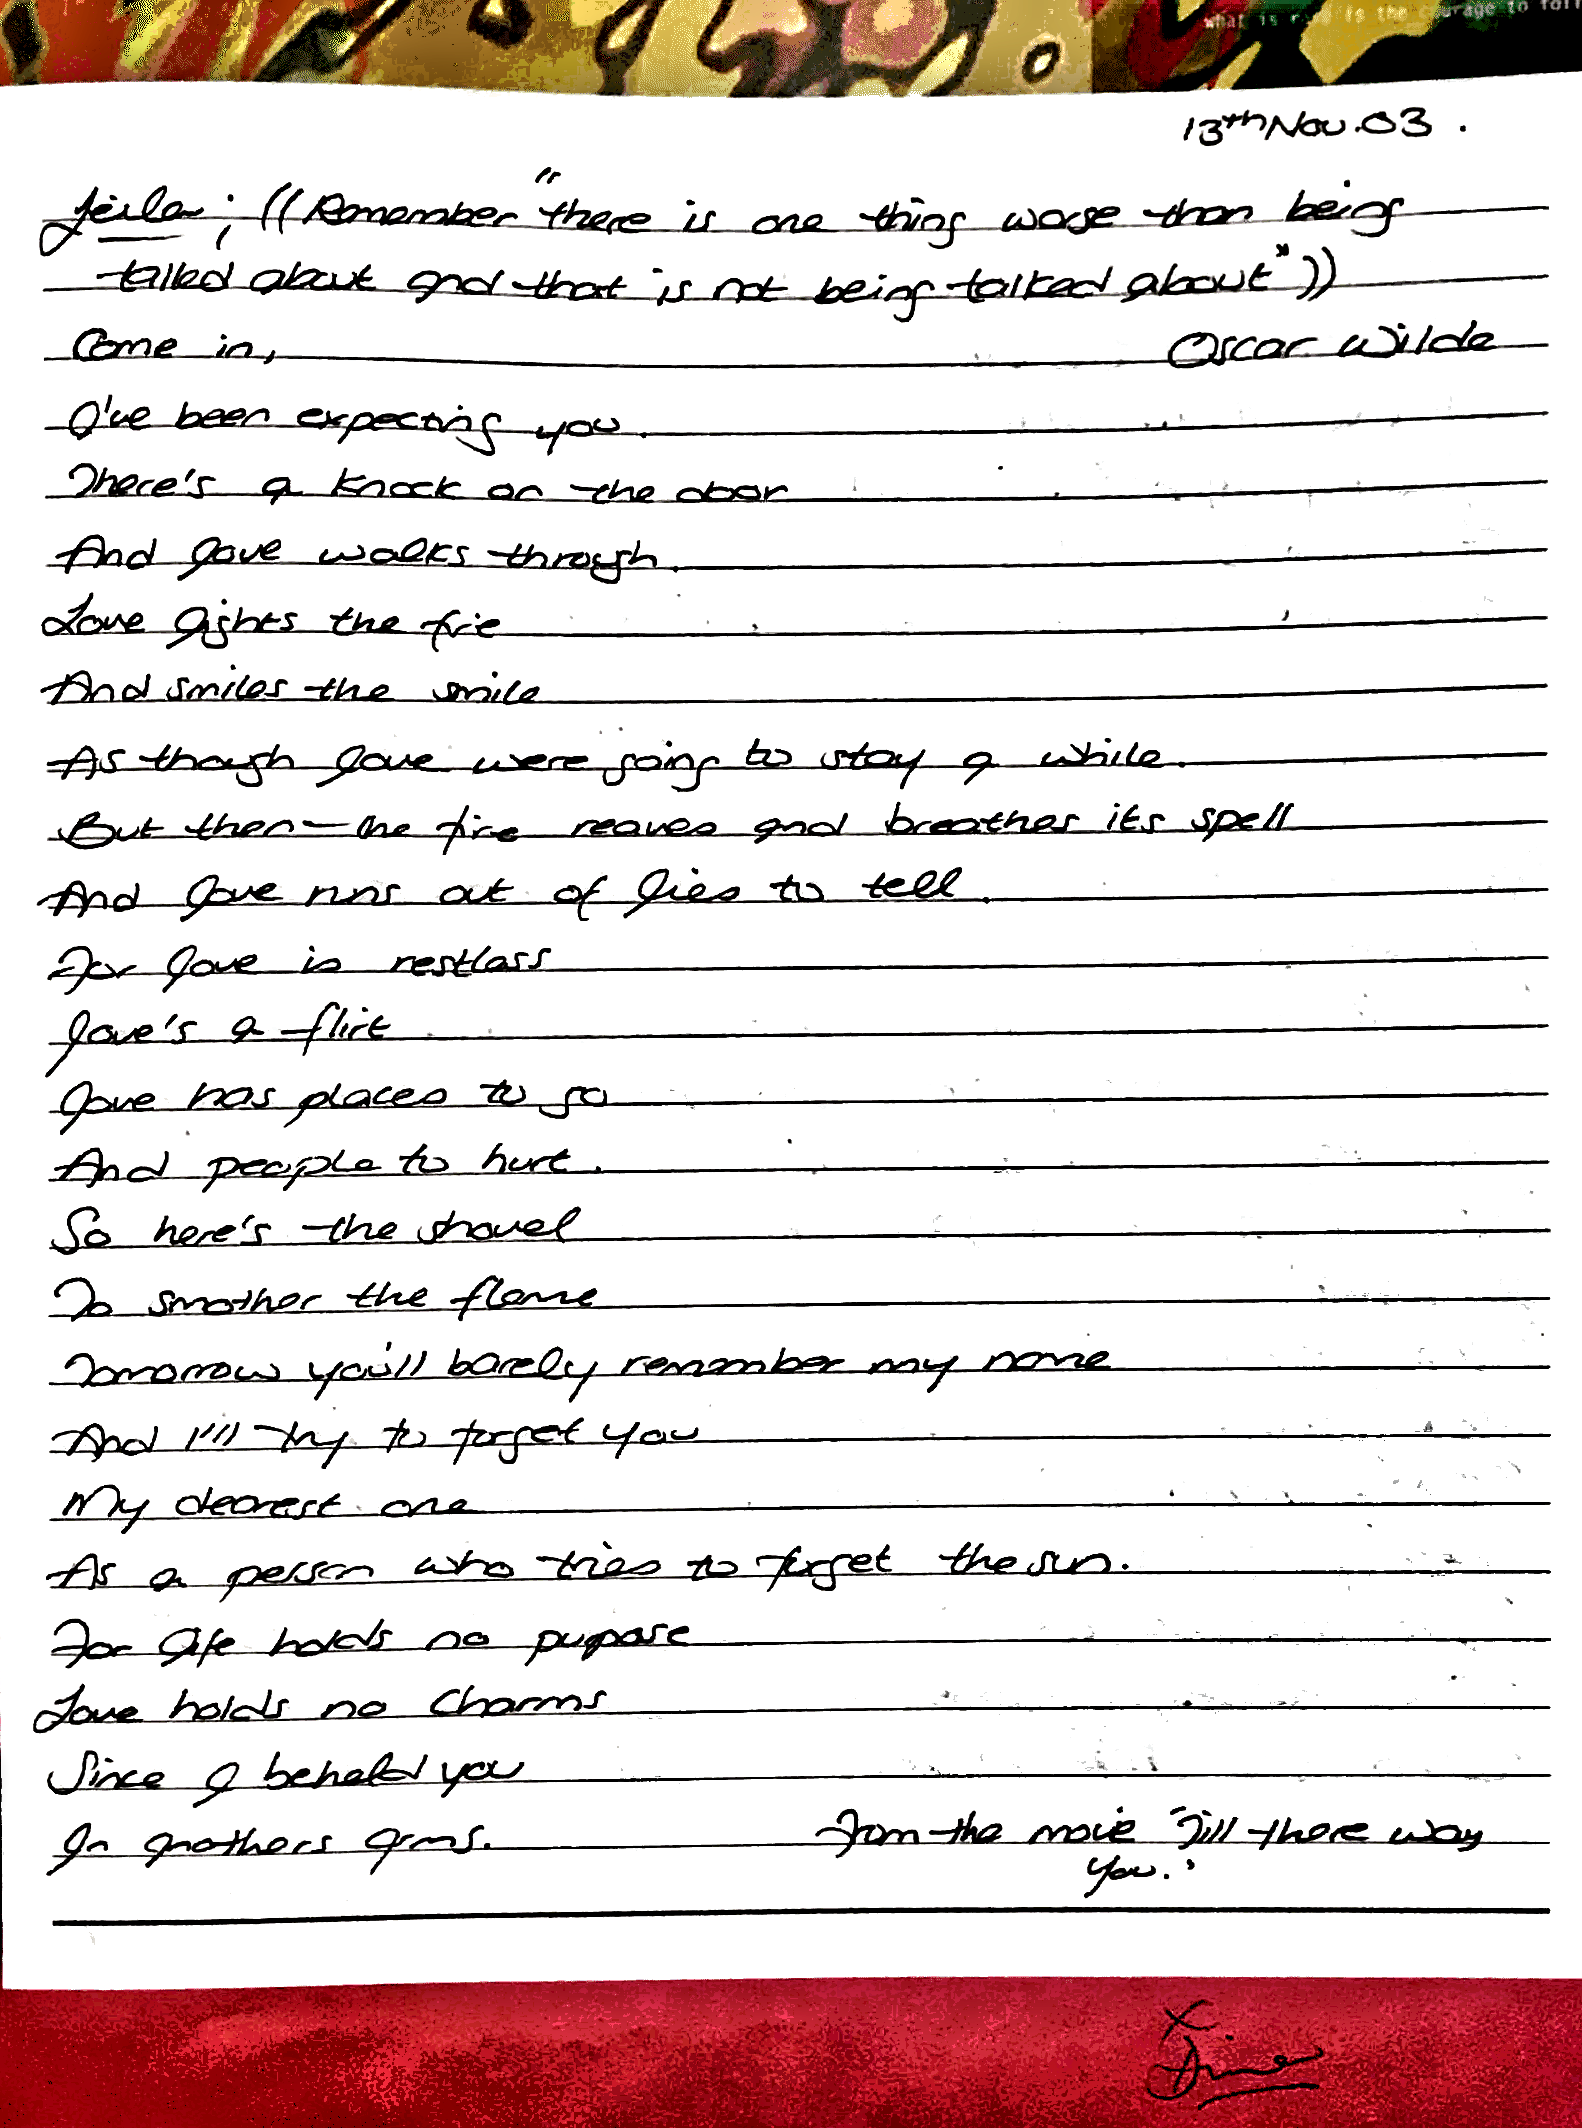 what is r is the courage to
13th Nov. 03 .
Leila ; ((Remember "there is one thing worse than being
talked about and that is not being talked about"))
Come in, Oscar Wilde
I've been expecting you.
There's a knock on the door
And love walks through.
Love lights the frie
And smiles the smile
As though love were going to stay a while.
But then - the fire reaves and breathes its spell
And love runs out of lies to tell.
For love is restless
Love's a flirt
Love has places to go
And people to hurt.
So here's the shovel
To smother the flame
Tomorrow you'll barely remember my name
And I'll try to forget you
My dearest one
As a person who tries to forget the sun.
For life holds no pupose
Love holds no charms
Since I beheld you
In anothers arms. From the movie "Till there way
You."
x